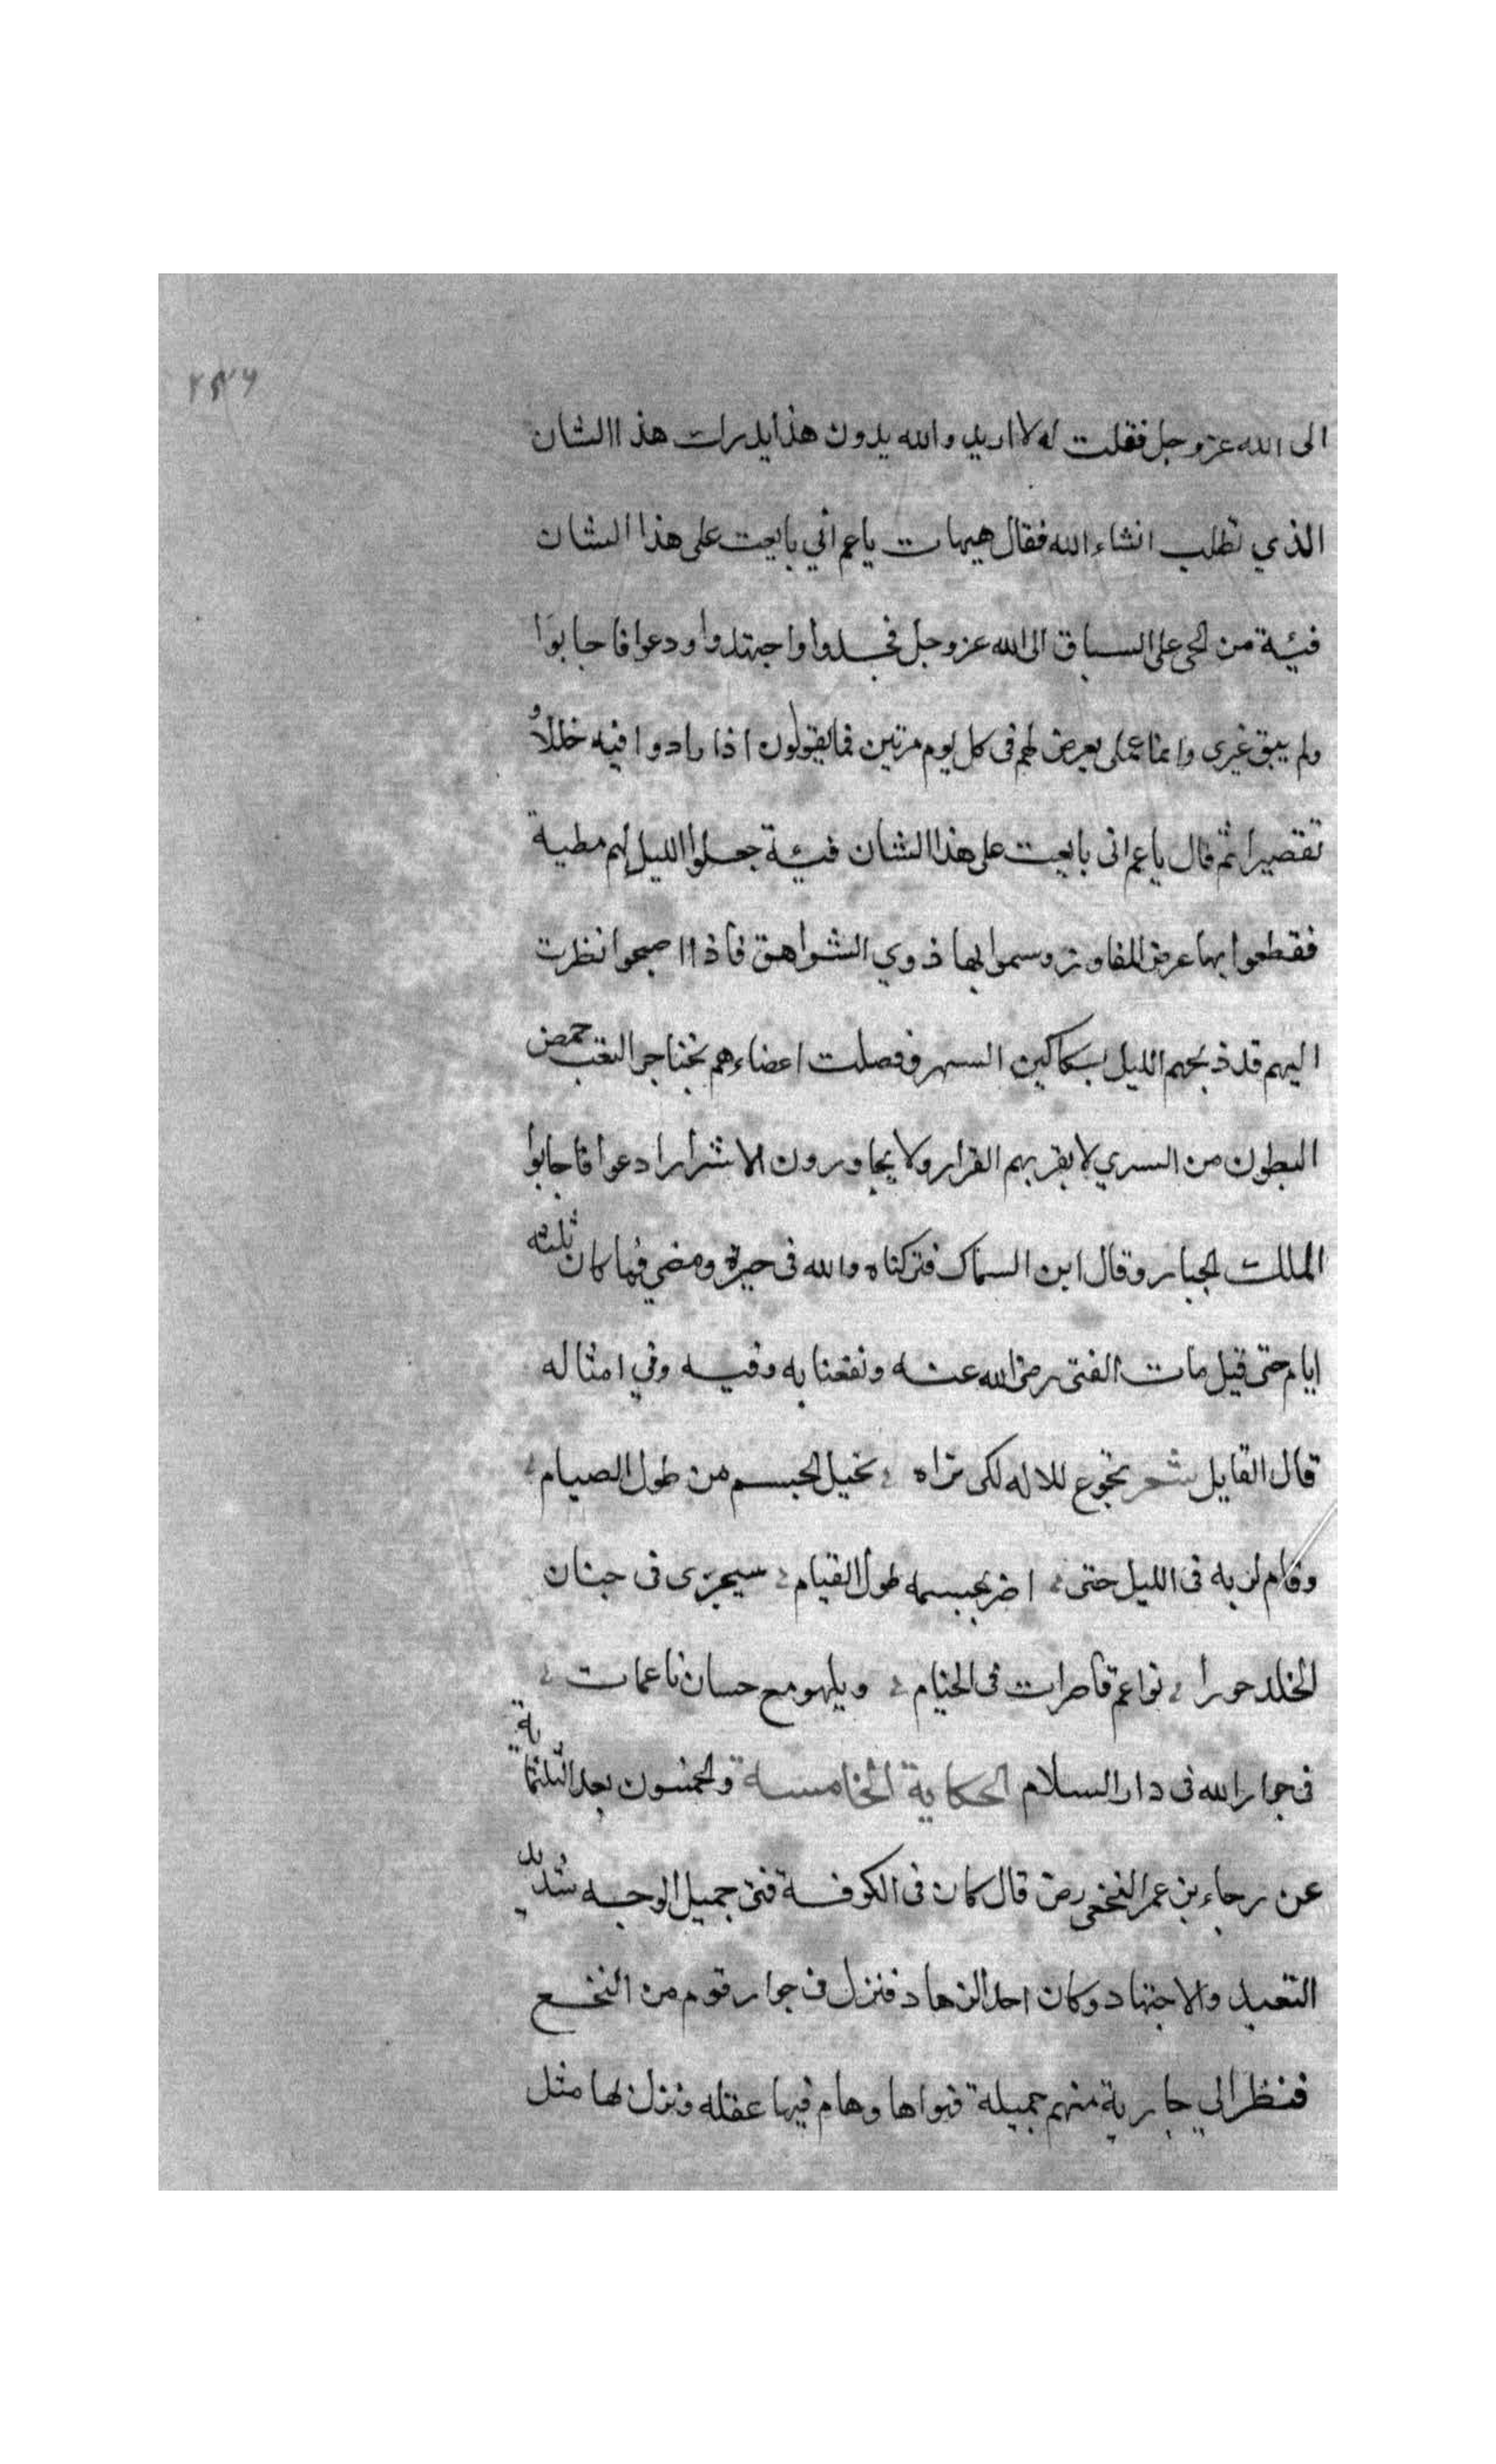 ٢٧٦
الى الله عز وجل فقلت له لا اريد والله بدون هذا يدرك هذا الشان
الذي تطلب انشاء الله فقال هيهات ياعم اني بايعت على هذا الشان
فيئة من الحى على السباق الى الله عز وجل فجدوا واجتهدوا ودعوا فاجابوا
ولم يبق غيرى وانما عملى يعرض لهم فى كل يوم مرتين فما يقولون اذا رادوا فيه خللا و
تقصيرا ثم قال ياعم انى بايعت على هذا الشان فيئة جعلوا الليل لهم مطية
فقطعوا بها عرض المفاوز وسموا بها ذوي الشواهق فاذا اصبحوا نظرت
اليهم قد ذبحهم الليل بسكاكين السهر وفصلت اعضاءهم بخناجر التعب خمص
البطون من السري لا يقر بهم القرار ولا يجاورون الاشرارا دعوا فاجابوا
الملك الجبار وقال ابن السماك فتركناه والله فى حيرة ومضي فما كان ثلثه
ايام حتى قيل مات الفتى رضى الله عنه ونفعنا به وفيه وفي امثاله
قال القايل شعر تجوع للاله لكى تراه نحيل الجسم من طول الصيام
وقام لربه فى الليل حتى اضر بجسمه طول القيام سيجزى فى جنان
الخلد حورا نواعم قاصرات فى الخيام ويلهو مع حسان ناعمات
فى جوار الله فى دار السلام الحكاية الخامسة والخمسون بعد الثلثماية
عن رجاء بن عمر النخعى رض قال كان فى الكوفة فتى جميل الوجه شديد
التعبد والاجتهاد وكان احد الزهاد فنزل فى جوار قوم من النخع
فنظر الي جارية منهم جميلة فهواها وهام فيها عقله ونزل لها مثل